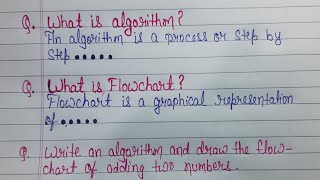 Q. What is algorithm?
An algorithm is a process or step by
step •••••
Q. What is Flowchart?
Flowchart is a graphical representation
of •••••
Q. Write an algorithm and draw the flow-
chart of adding two numbers.